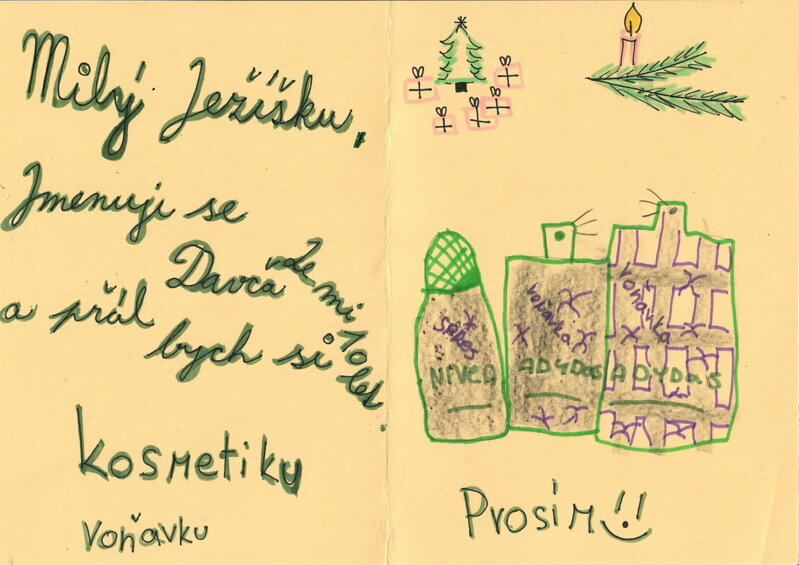 Milý Ježíšku,
Jmenuji se
Davča
mi 10 let.
a přál
bych si
kosmetiku
voňavku
NIVEA
voňavka
ADYDAS
voňavka
ADYDAS
Prosím!!